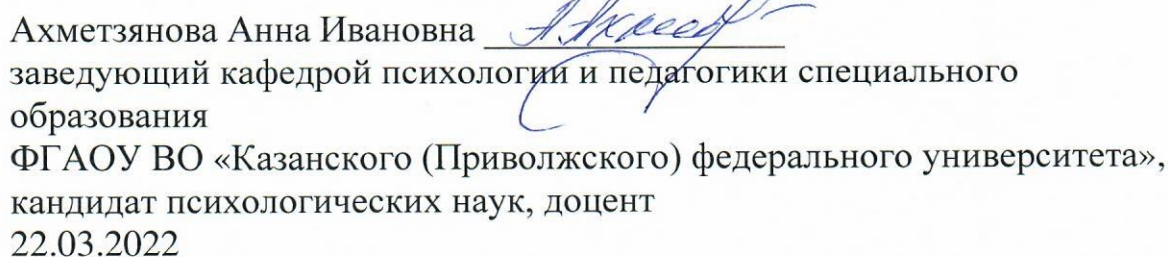 Ахметзянова Анна Ивановна
заведующий кафедрой психологии и педагогики специального
образования
ФГАОУ ВО «Казанского (Приволжского) федерального университета»,
кандидат психологических наук, доцент
22.03.2022